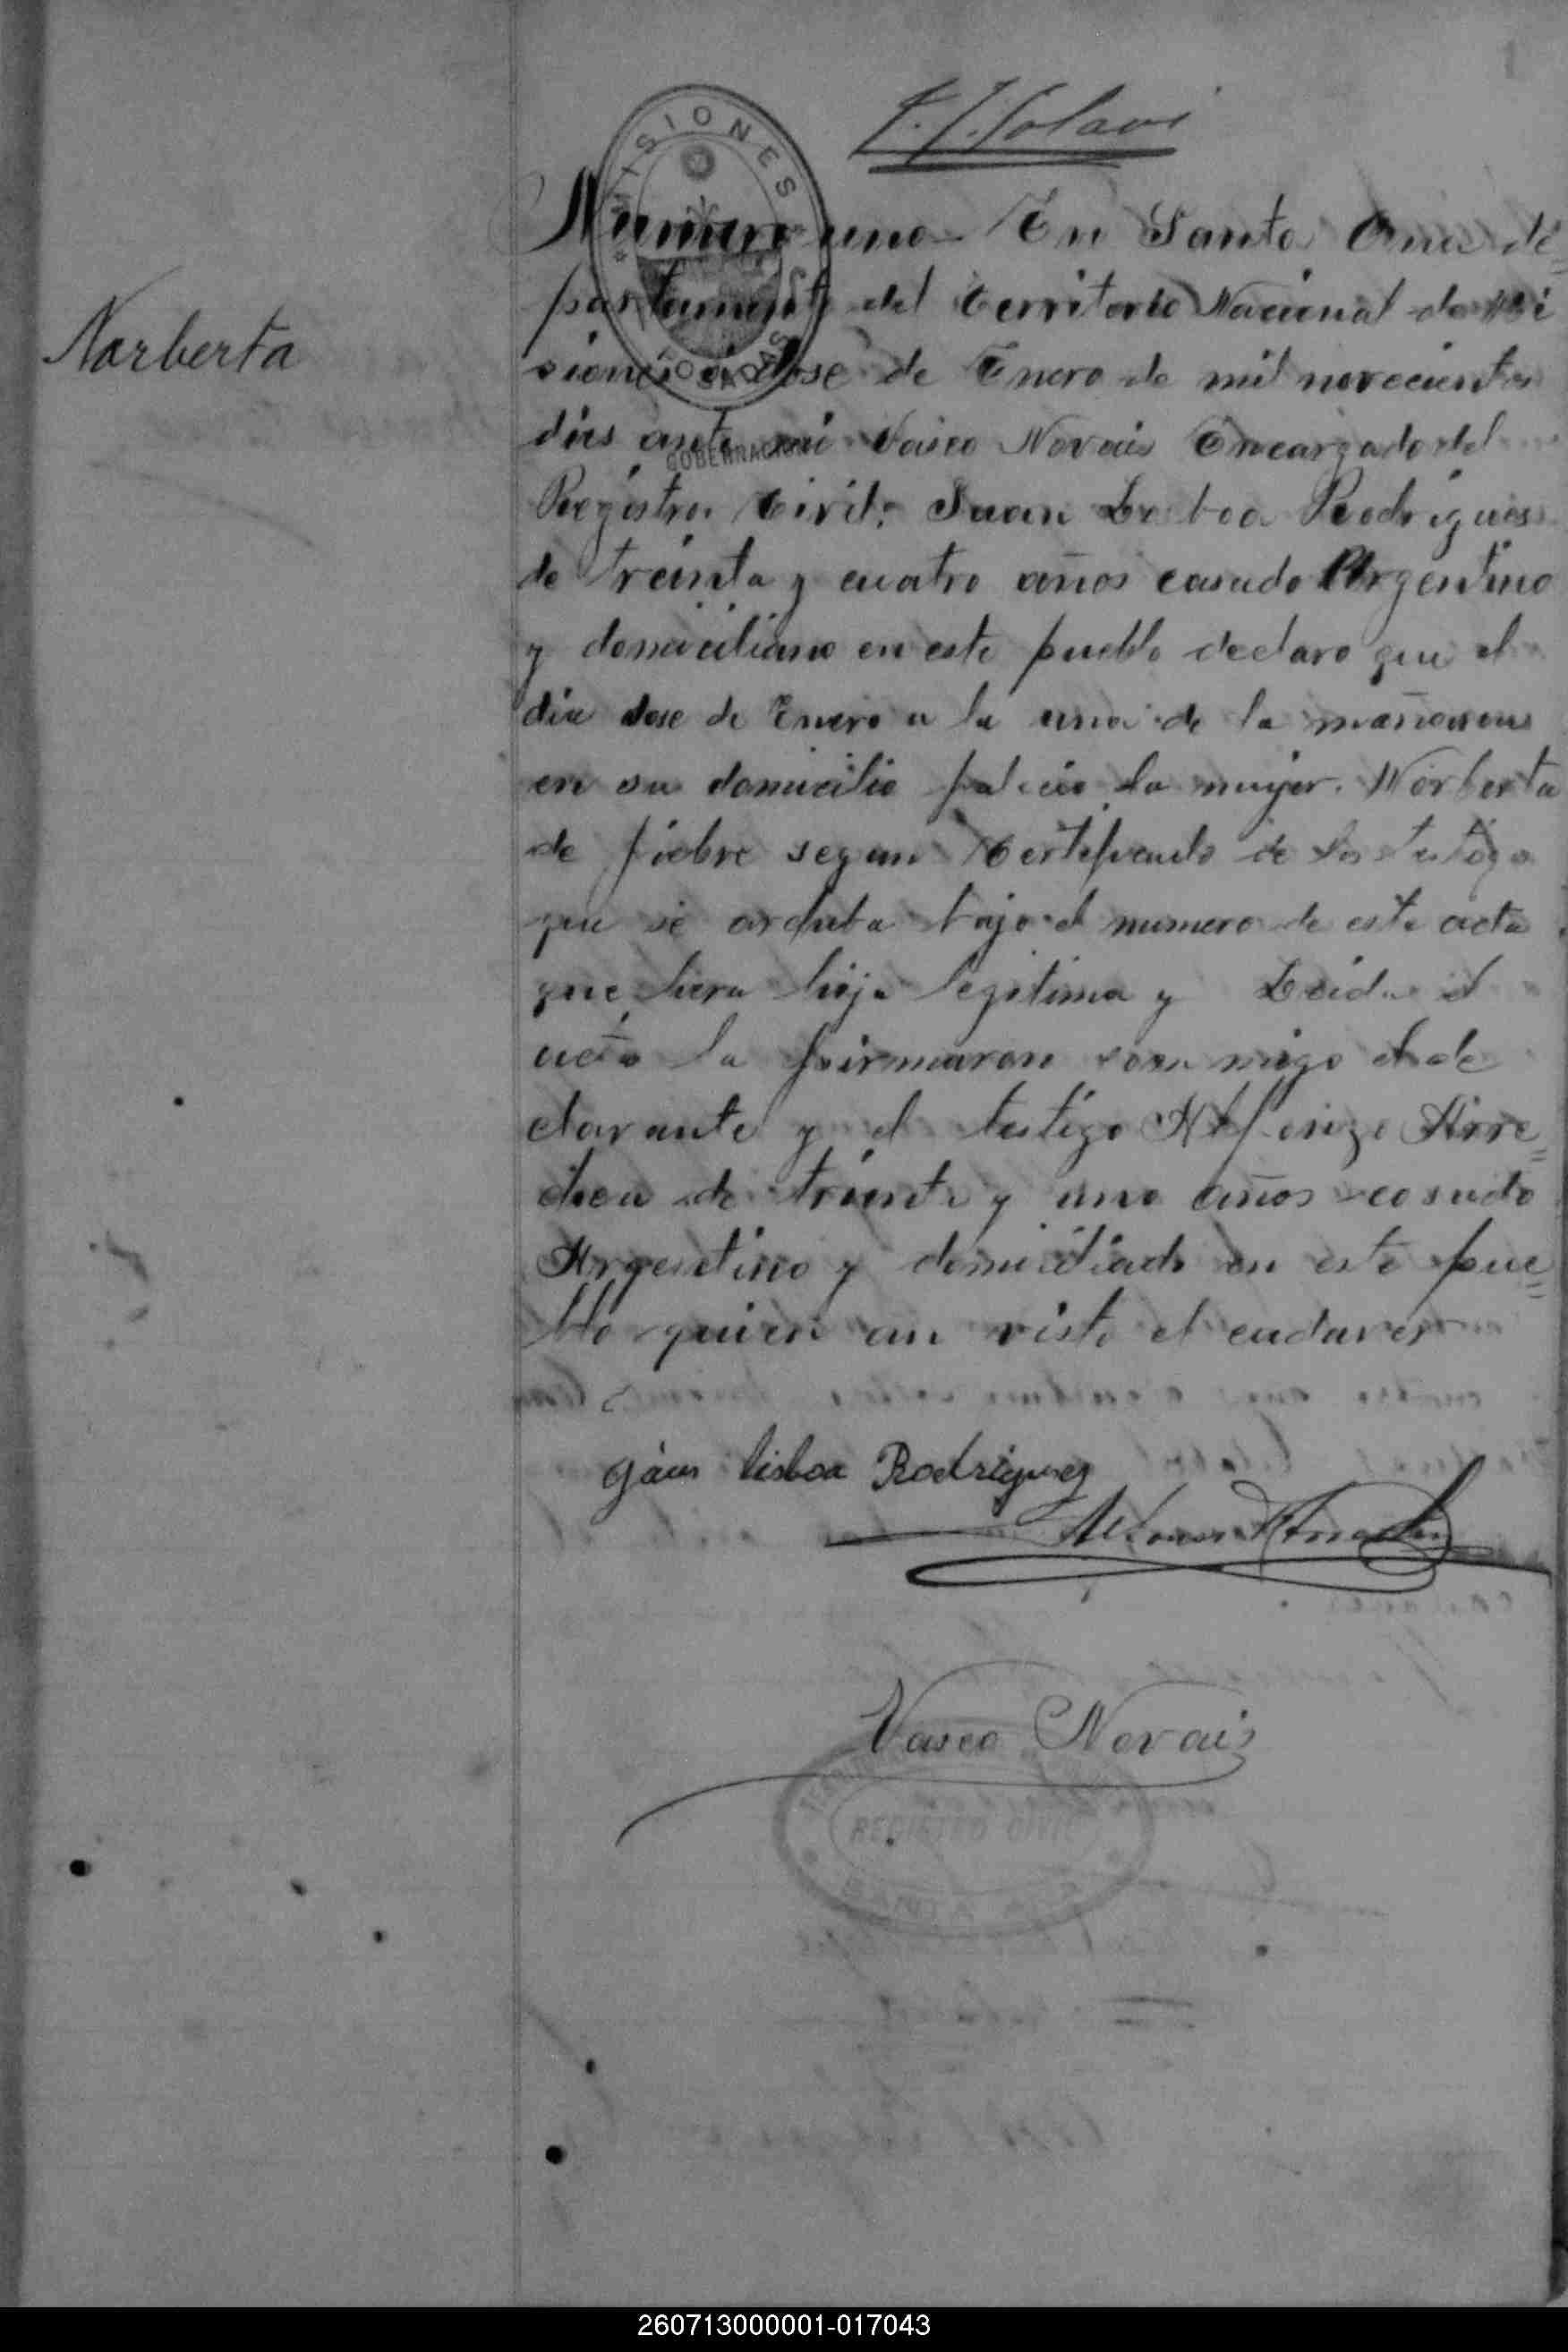 1
Norberta
MISIONES
POSADAS
GOBERNACION
Numero uno En Santa Ana de=
partamento del territorio Nacional de Mi
siones a dose de Enero de mil novecientos
dies ante mi Vasco Novais Encargado del
Registro Civil: Juan Lisboa Rodrigues
de treinta y cuatro años casado Argentino
y domiciliano en este pueblo declaro que el
dia dose de Enero a la una de la mañana
en su domicilio falecio la mujer Norberta
de fiebre segun Certificado de los testigo
que se archiba bajo el numero de este acta
que hera hija legitima y Leida el
acta la firmaron con migo el de
clarante y el testigo Alfonzo Arre=
chea de treinta y uno años casado
Argentino y domiciliado en este pue=
blo quien an visto el cadaver
Juan lisboa Rodriguez
Alfonso Arrechea
Vasco Novais
REGISTRO CIVIL
SANTA ANA
260713000001-017043